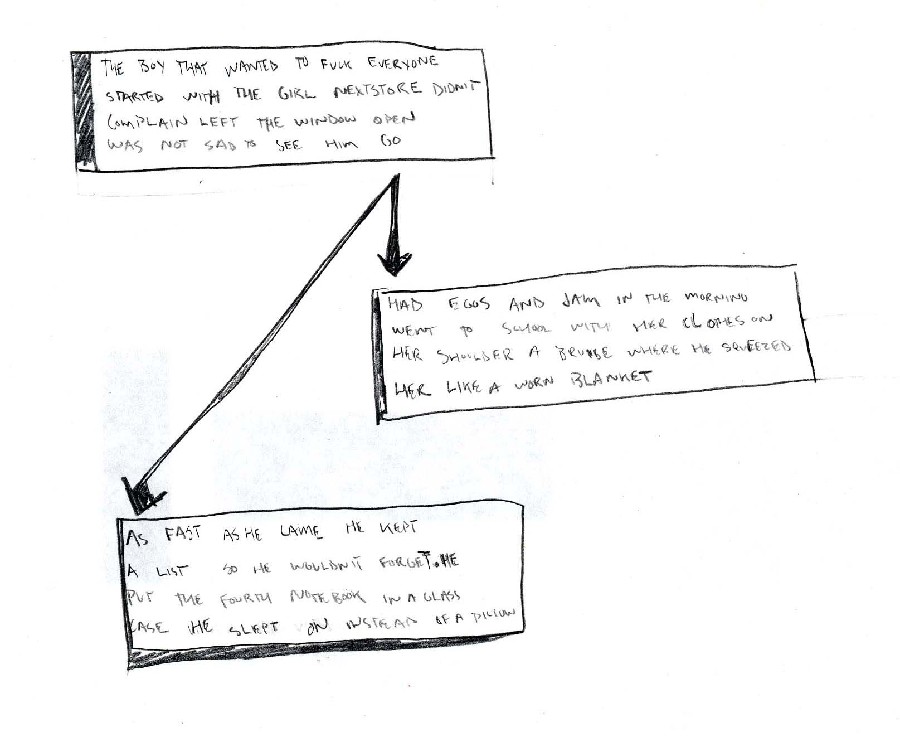 THE BOY THAT WANTED TO FUCK EVERYONE
STARTED WITH THE GIRL NEXTSTORE DIDN'T
COMPLAIN LEFT THE WINDOW OPEN
WAS NOT SAD TO SEE HIM GO
HAD EGGS AND JAM IN THE MORNING
WENT TO SCHOOL WITH HER CLOTHES ON
HER SHOULDER A BRUISE WHERE HE SQUEEZED
HER LIKE A WORN BLANKET
AS FAST AS HE CAME HE KEPT
A LIST SO HE WOULDN'T FORGET. HE
PUT THE FOURTH NOTEBOOK IN A GLASS
CASE HE SLEPT ON INSTEAD OF A PILLOW